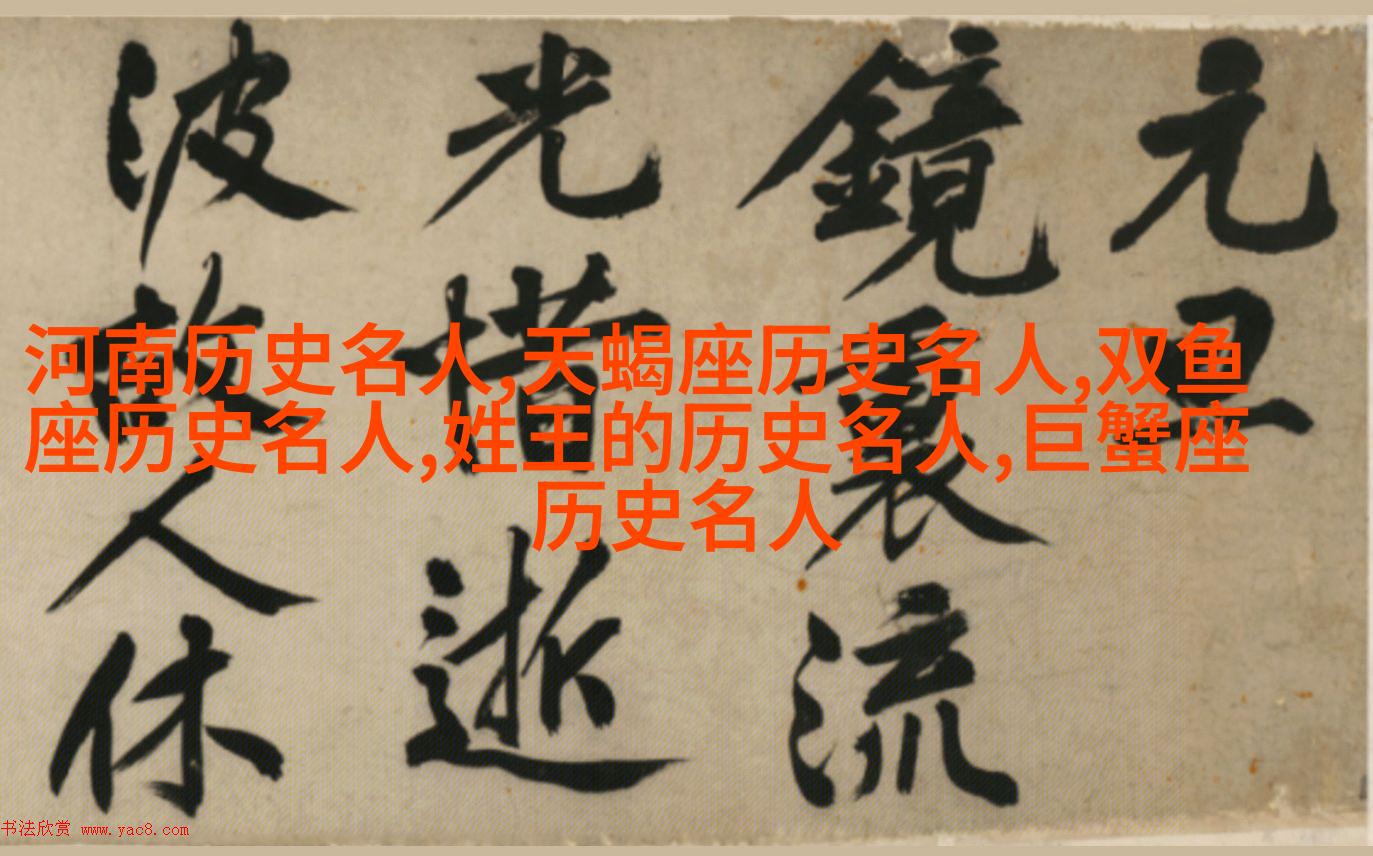 元旦
鏡裏流
光惜逝
波故人休
河南历史名人,天蝎座历史名人,双鱼
座历史名人,姓王的历史名人,巨蟹座
历史名人
书法欣赏 www.yac8.com